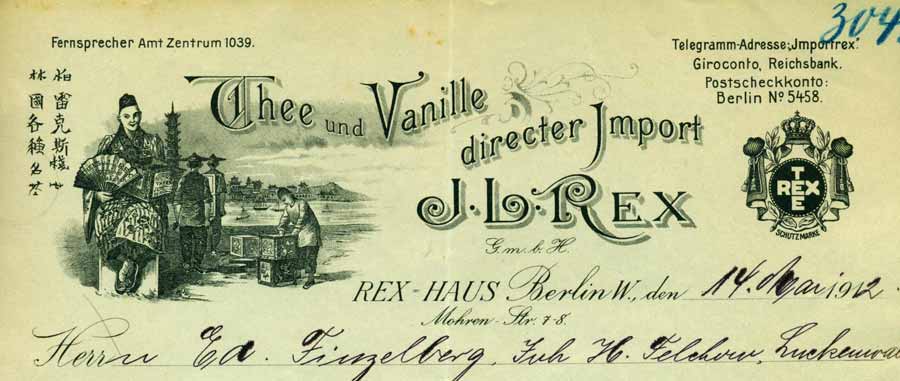 304
Fernsprecher Amt Zentrum 1039.
Telegramm-Adresse: „Importrex.“
Giroconto, Reichsbank.
Postscheckkonto:
Berlin No 5458.
柏雷克斯棧
林國各種名茶
Thee und Vanille
directer Import
J. L. REX
G. m. b. H.
TEE
REX
SCHUTZMARKE
REX-HAUS Berlin W., den 14. Mai 1912
Mohren-Str. 7-8.
Herrn Ed. Finzelberg, Inh H. Felchow, Luckenwal